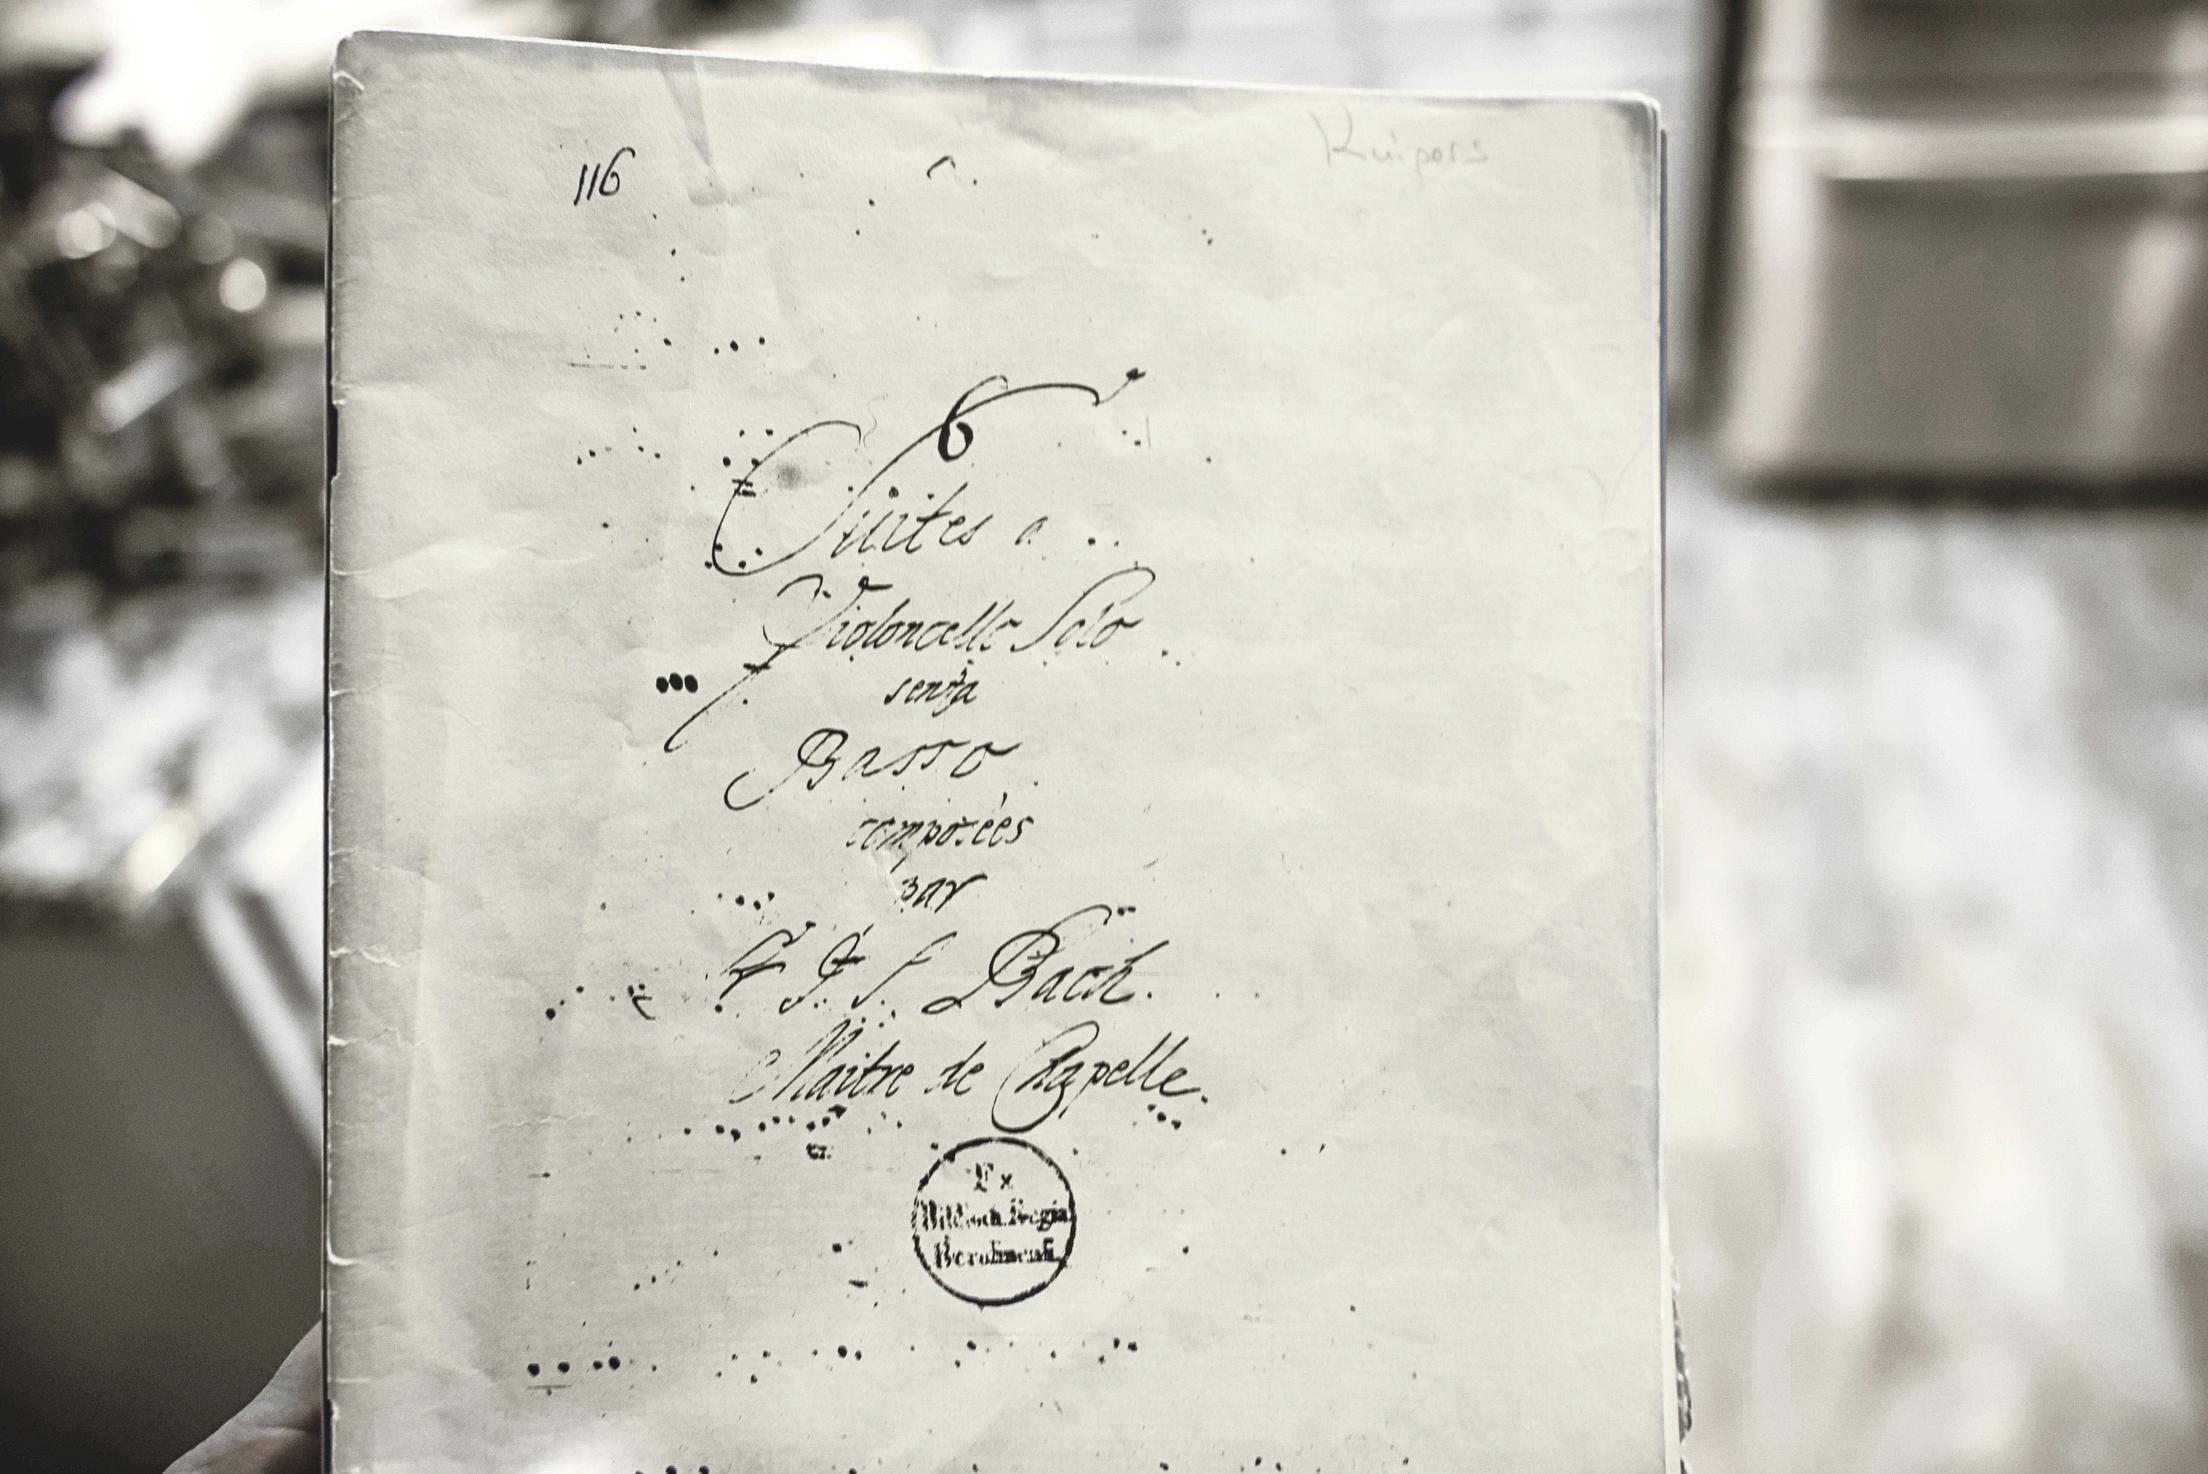 116
Kuipers
6
Suites a
Violoncello Solo
senza
Basso
composées
par
S.r J. S. Bach.
Maitre de Chapelle.
Ex
Biblioth. Regia
Berolinensi.